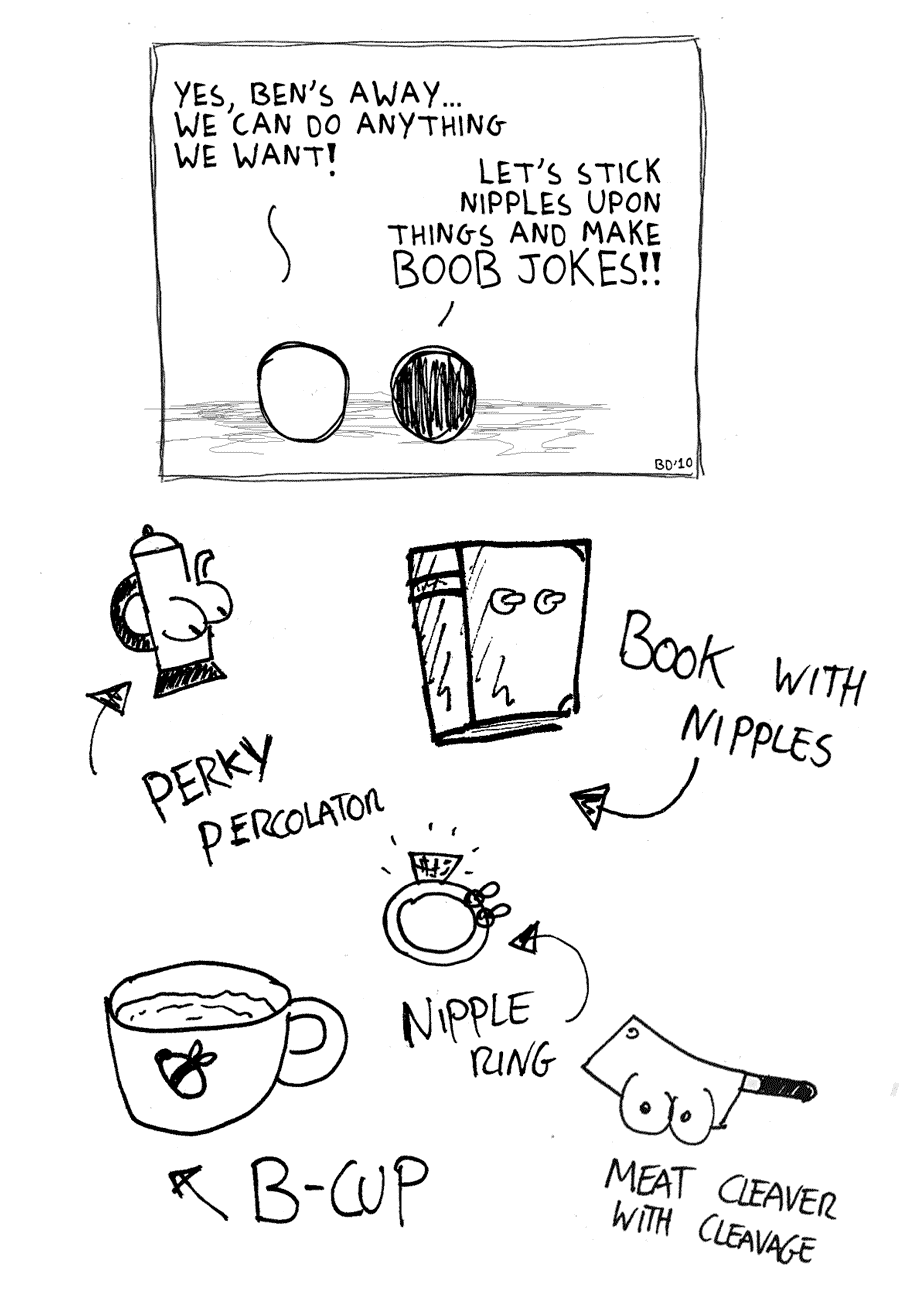 YES, BEN'S AWAY...
WE CAN DO ANYTHING
WE WANT!
LET'S STICK
NIPPLES UPON
THINGS AND MAKE
BOOB JOKES!!
BD'10
PERKY
PERCOLATOR
BOOK WITH
NIPPLES
NIPPLE
RING
B-CUP
MEAT CLEAVER
WITH CLEAVAGE